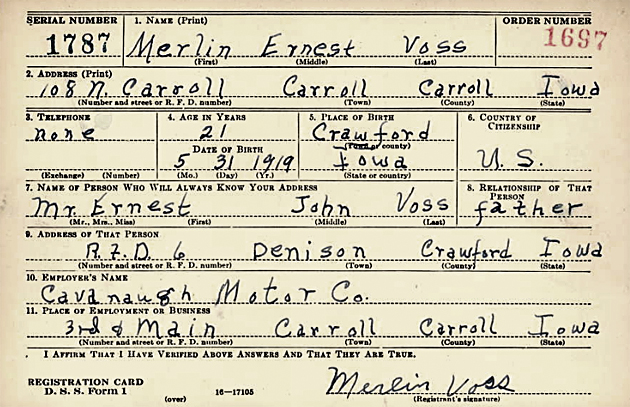 SERIAL NUMBER 1. NAME (Print) ORDER NUMBER
1787 Merlin Ernest Voss 1697
(First) (Middle) (Last)
2. ADDRESS (Print)
108 N. Carroll Carroll Carroll Iowa
(Number and street or R. F. D. number) (Town) (County) (State)
3. TELEPHONE 4. AGE IN YEARS 5. PLACE OF BIRTH 6. COUNTRY OF CITIZENSHIP
none 21 Crawford
(Town or county)
DATE OF BIRTH
5 31 1919 Iowa U. S.
(Exchange) (Number) (Mo.) (Day) (Yr.) (State or country)
7. NAME OF PERSON WHO WILL ALWAYS KNOW YOUR ADDRESS 8. RELATIONSHIP OF THAT PERSON
Mr. Ernest John Voss father
(Mr., Mrs., Miss) (First) (Middle) (Last)
9. ADDRESS OF THAT PERSON
R.F.D. 6 Denison Crawford Iowa
(Number and street or R. F. D. number) (Town) (County) (State)
10. EMPLOYER'S NAME
Cavanaugh Motor Co.
11. PLACE OF EMPLOYMENT OR BUSINESS
3rd & Main Carroll Carroll Iowa
(Number and street or R. F. D. number) (Town) (County) (State)
I AFFIRM THAT I HAVE VERIFIED ABOVE ANSWERS AND THAT THEY ARE TRUE.
REGISTRATION CARD
D. S. S. Form 1 16—17105 Merlin Voss
(over) (Registrant's signature)